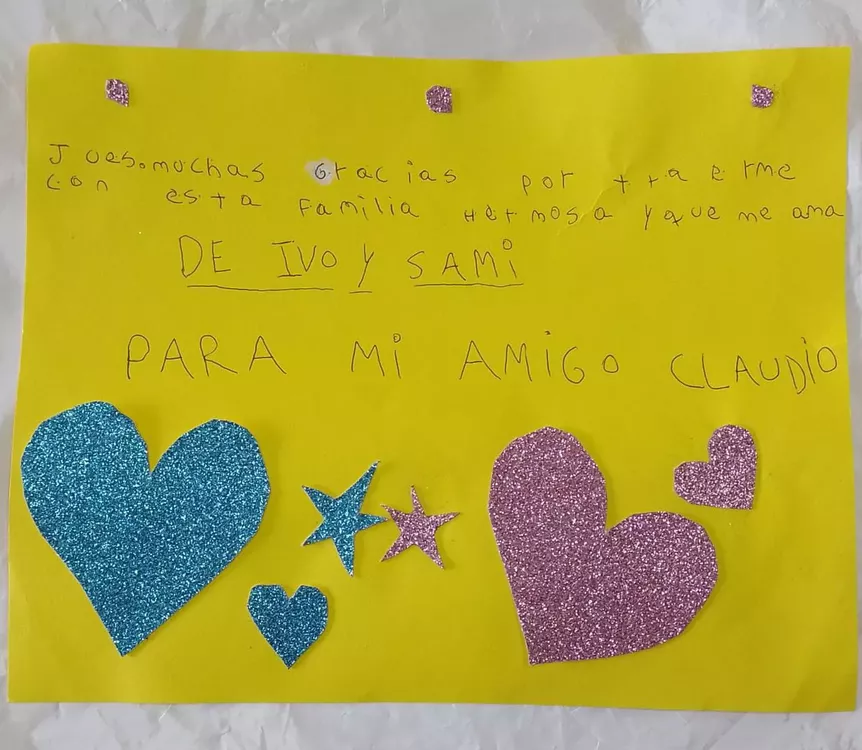 Jues.muchas Gracias por traerme
con esta Familia Hermosa y que me ama
DE IVO Y SAMi
PARA Mi AMiGO CLAUDiO